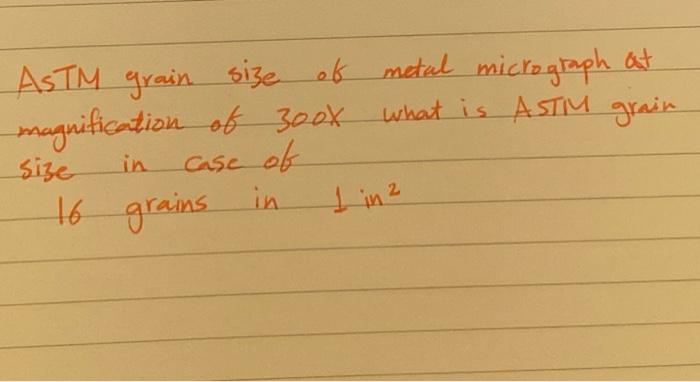 ASTM grain size of metal micrograph at
magnification of 300X what is ASTM grain
size in case of
16 grains in 1 in²